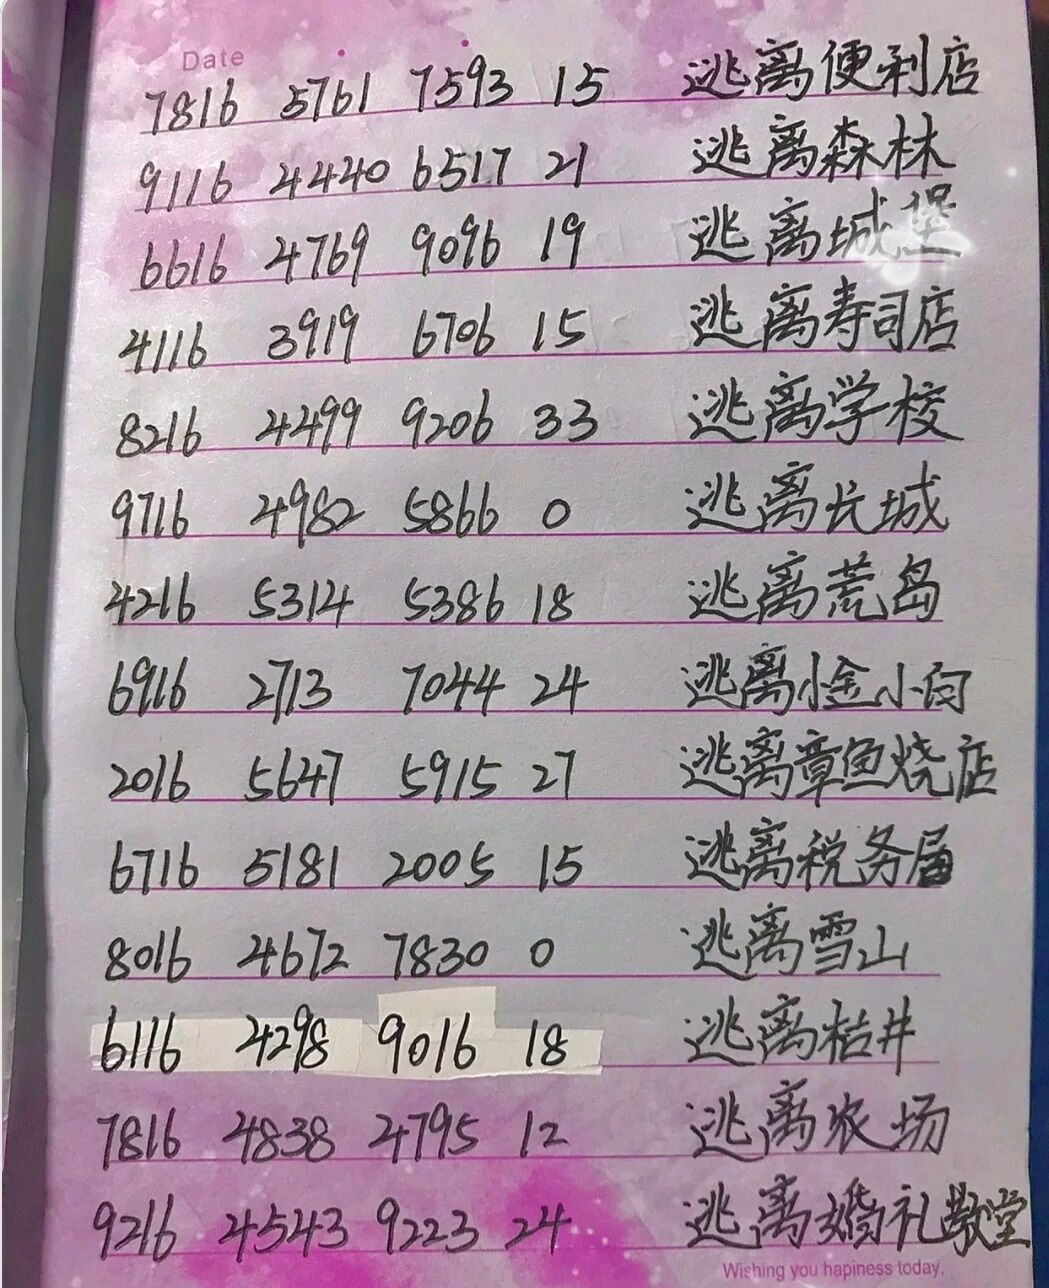 Date
7816 5761 7593 15 逃离便利店
9116 4440 6517 21 逃离森林
6616 4769 9096 19 逃离城堡
4116 3919 6706 15 逃离寿司店
8216 4499 9206 33 逃离学校
9716 4982 5866 0 逃离长城
4216 5314 5386 18 逃离荒岛
6916 2713 7044 24 逃离小金小向
2016 5647 5915 27 逃离章鱼烧店
6716 5181 2005 15 逃离税务局
8016 4672 7830 0 逃离雪山
6116 4298 9016 18 逃离枯井
7816 4838 2795 12 逃离农场
9216 4543 9223 24 逃离婚礼教堂
Wishing you hapiness today.